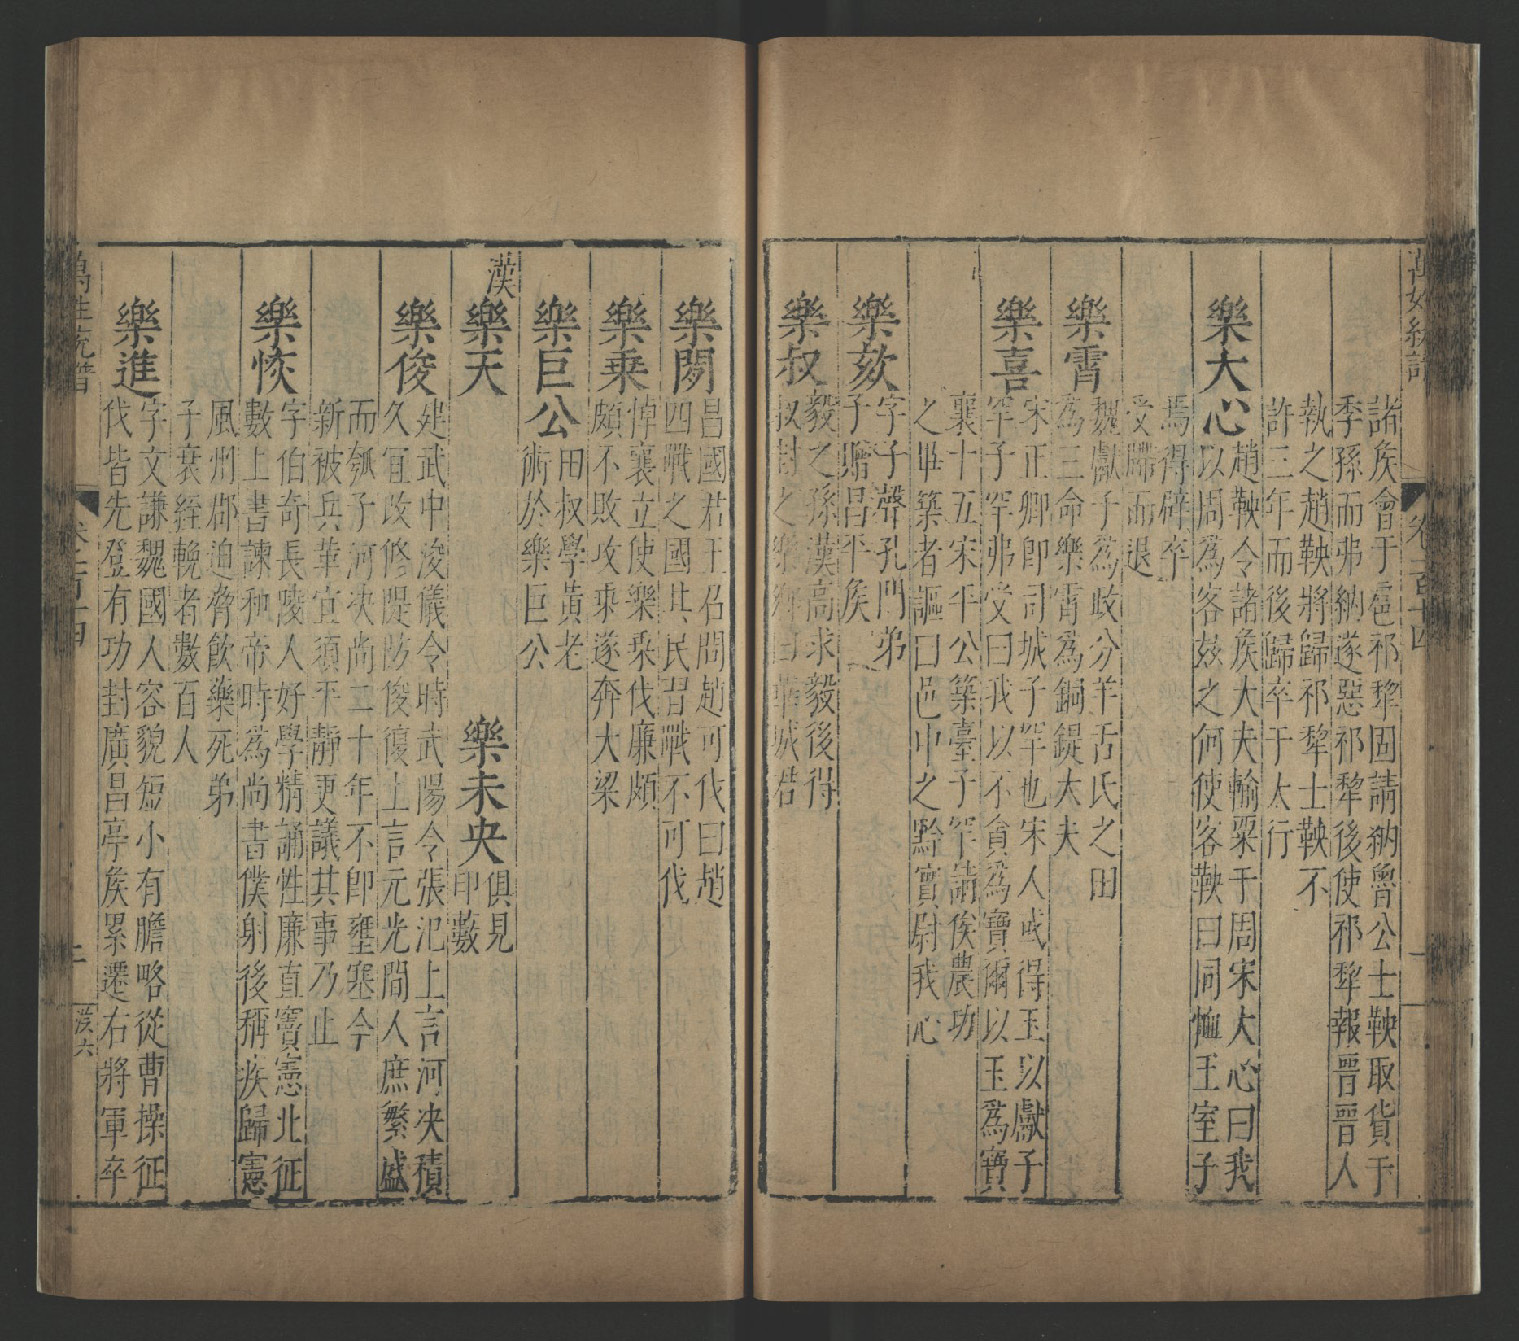 諸矦會于扈祁犂固請納魯公士鞅取貨于
季孫而弗納遂惡祁犂後使祁犂報晉晉人
執之趙鞅將歸祁犂士鞅不
許三年而後歸卒于太行
樂大心
趙鞅令諸矦大夫輸粟于周宋大心曰我
以周爲客玆之何使客鞅曰同恤王室子
焉得辟卒
受牒而退
樂霄
魏獻子爲政分羊舌氏之田
爲三命樂霄爲銅鍉大夫
樂喜
宋正卿卽司城子罕也宋人或得玉以獻子
罕子罕弗受曰我以不貪爲寶爾以玉爲寶
襄十五宋平公築臺子罕請俟農功
之畢築者謳曰邑中之黔實尉我心
樂欬
字子聲孔門弟
子贈昌平矦
樂叔
毅之孫漢高求毅後得
叔封之樂鄉曰華城君
樂閒
昌國君王召問趙可伐曰趙
四戰之國其民習戰不可伐
樂乗
悼襄立使樂乗伐廉頗
頗不敗攻乗遂奔大梁
樂巨公
田叔學黃老
術於樂巨公
漢
樂天
樂未央
俱見
印藪
樂俊
建武中浚儀令時武陽令張汜上言河决積
久宜改修隄防俊復上言元光間人庶繁盛
而瓠子河决尚二十年不卽壅塞今
新被兵革宜須平靜更議其事乃止
樂恢
字伯奇長陵人好學精誦性廉直竇憲北征
數上書諫和帝時爲尚書僕射後稱疾歸憲
風州郡迫脅飲藥死弟
子衰絰輓者數百人
樂進
字文謙魏國人容貌短小有膽略從曹操征
伐皆先登有功封廣昌亭矦累遷右將軍卒
萬姓統譜